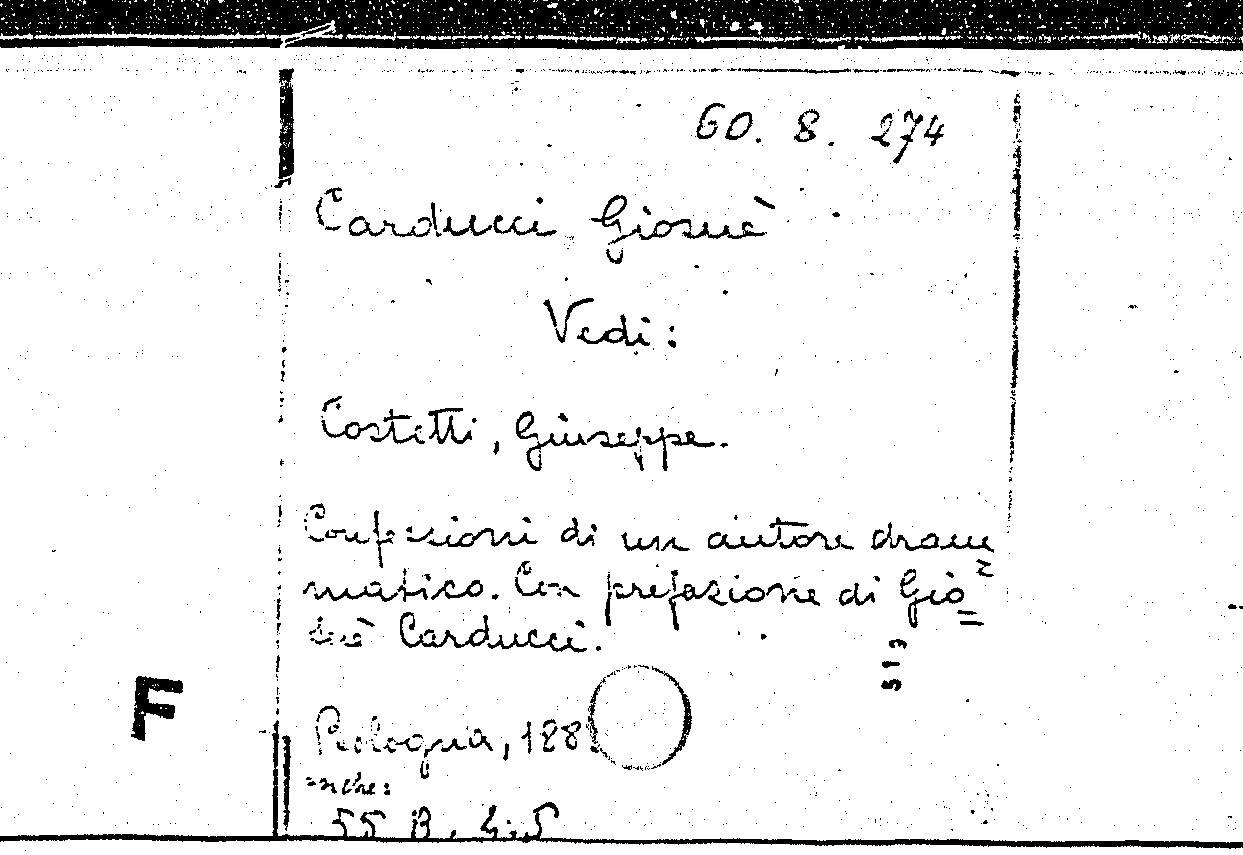 60. 8. 274
Carducci, Giosuè
Vedi:
Costetti, Giuseppe.
Confessioni di un autore dram=
matico. Con prefazione di Gio=
suè Carducci.
513
F
Bologna, 188
anche:
55 B.